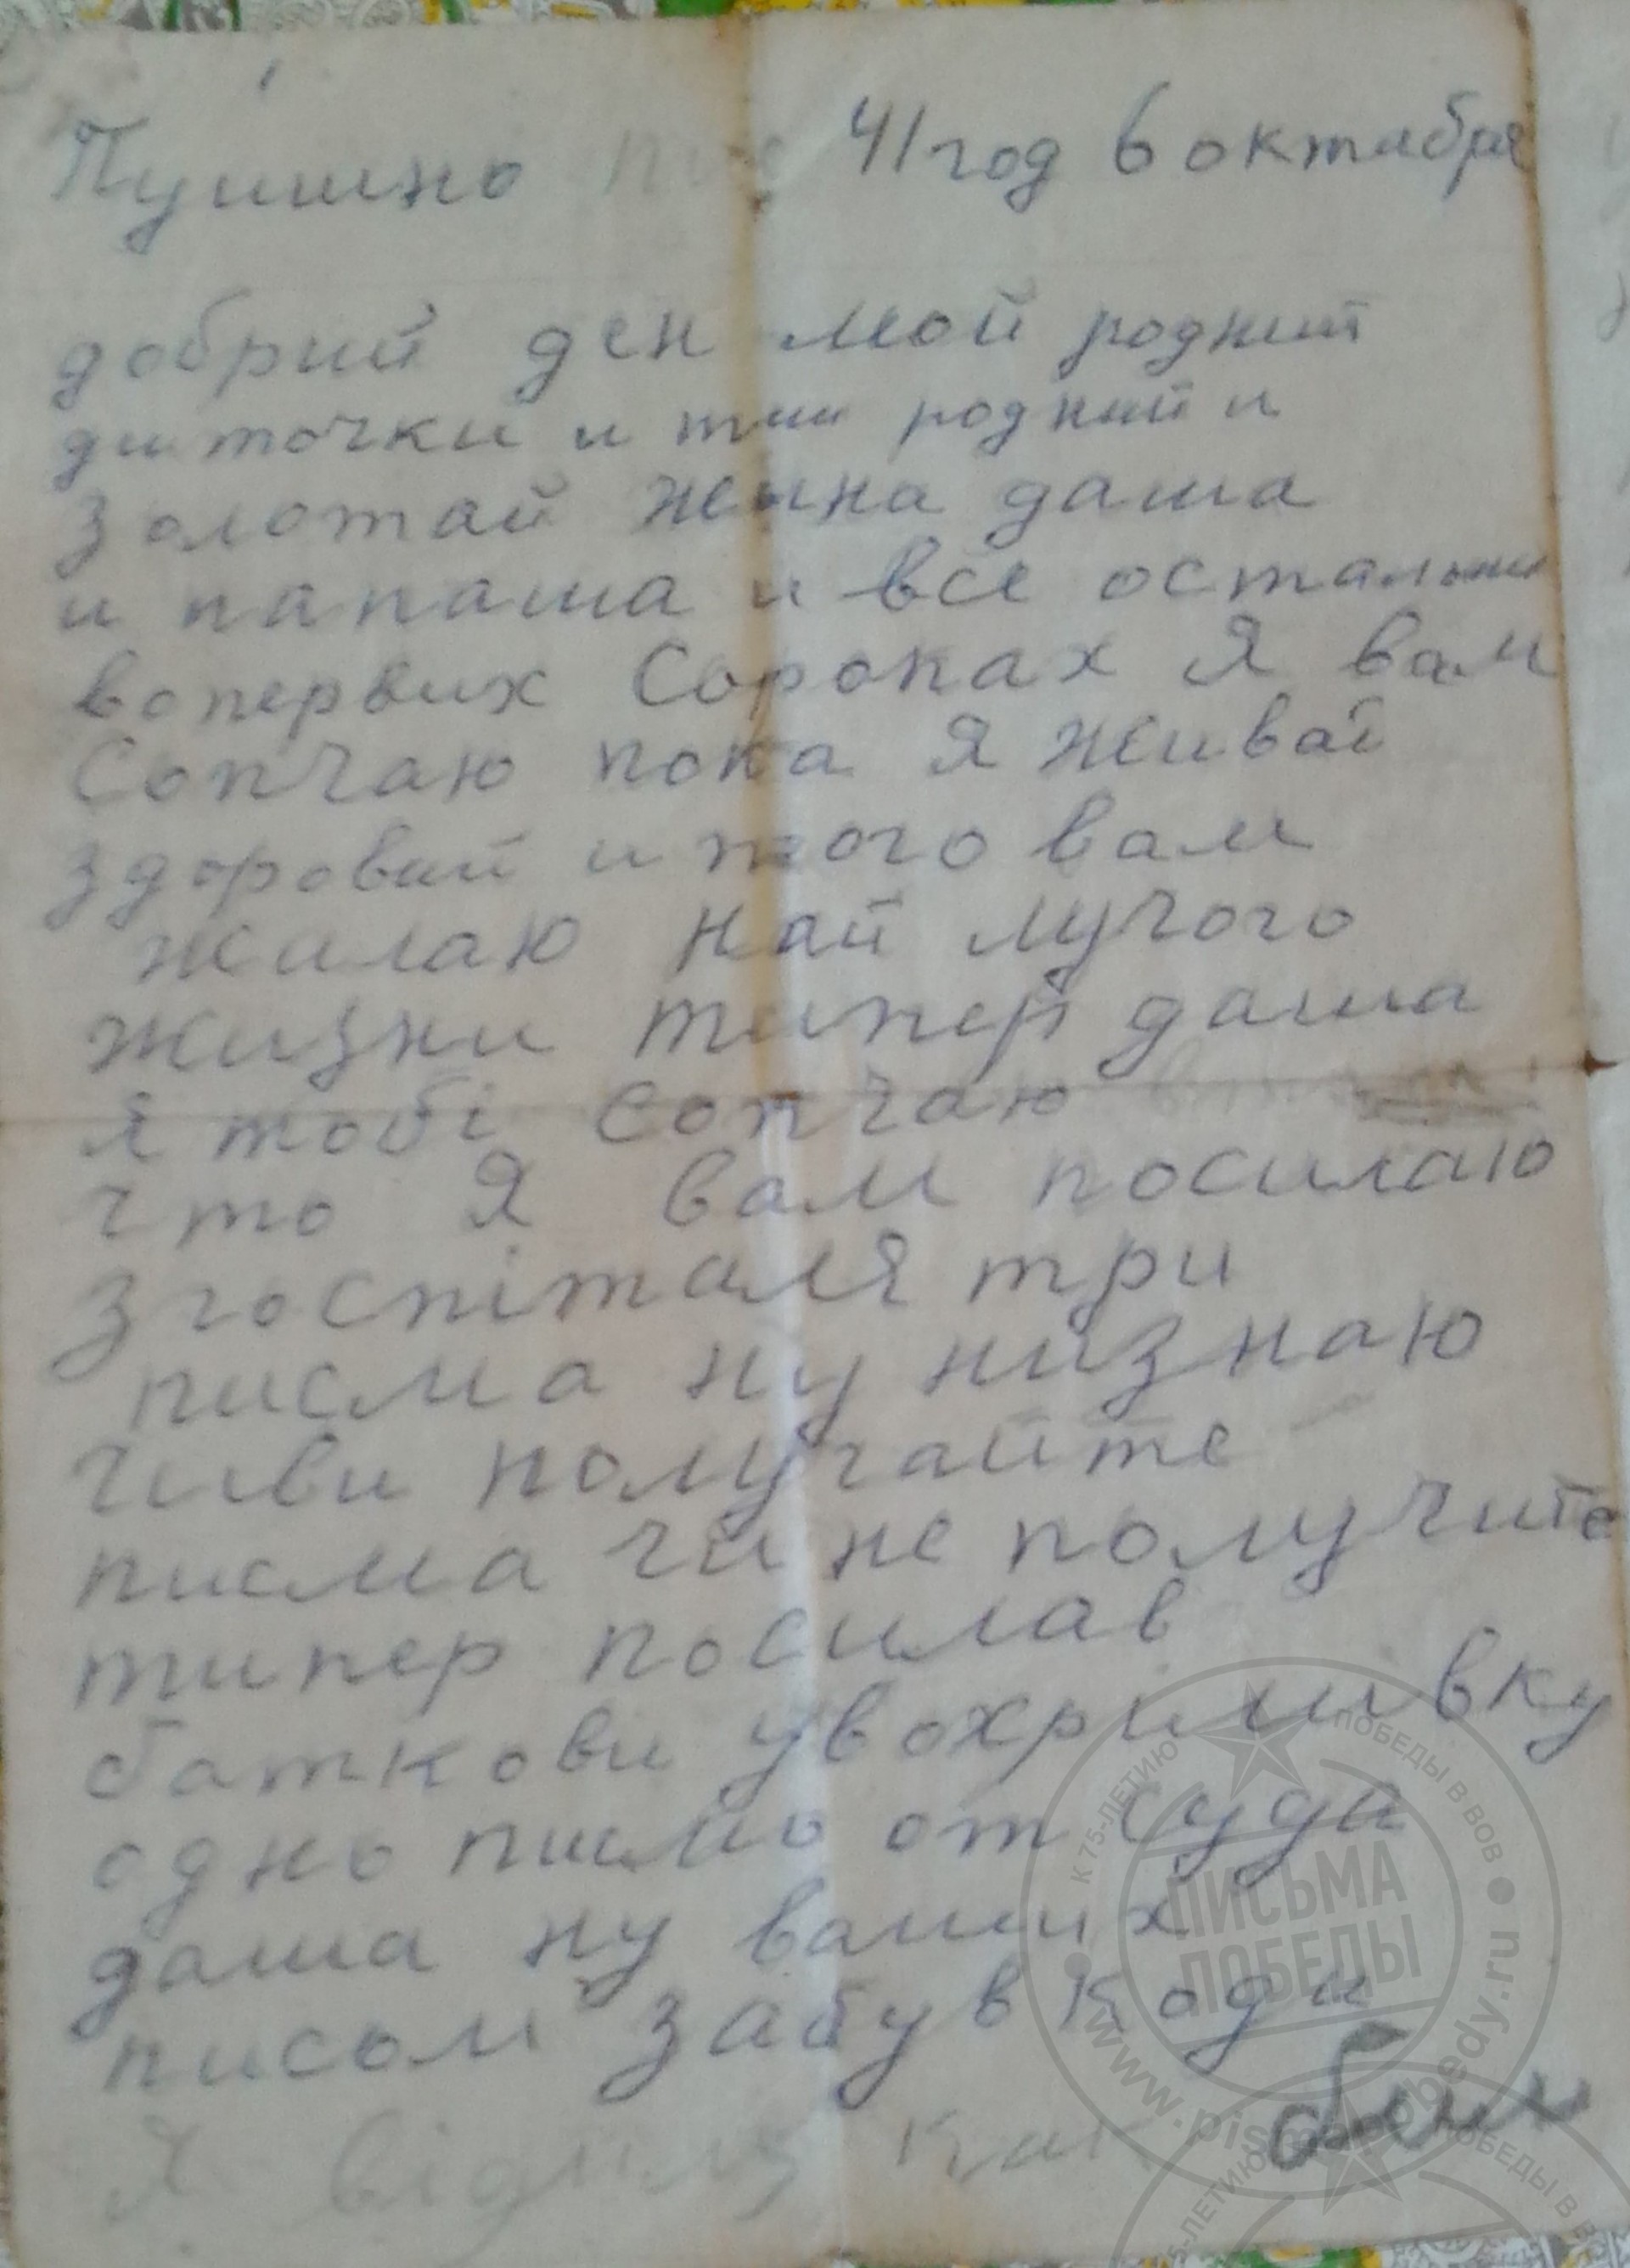 41 год 6 октабря
добрий ден мой родний
диточки и тии родний и
золотай жына даша
и папаша и все осталние
вопервих Сороках Я вам
Сопчаю пока Я живай
здоровий и того вам
жилаю най лучого
жизни типер даша
я тобі сопчаю
что Я вам посилаю
з госпіталя три
писма ну низнаю
чиви получайте
писма чи не получите
типер посилав
баткови увохримівку
одно писмо от суда
даша ну ваших
писом забув коди
Я как
К 75-ЛЕТИЮ ПОБЕДЫ В ВОВ
ПИСЬМА
ПОБЕДЫ
www.pismapobedy.ru